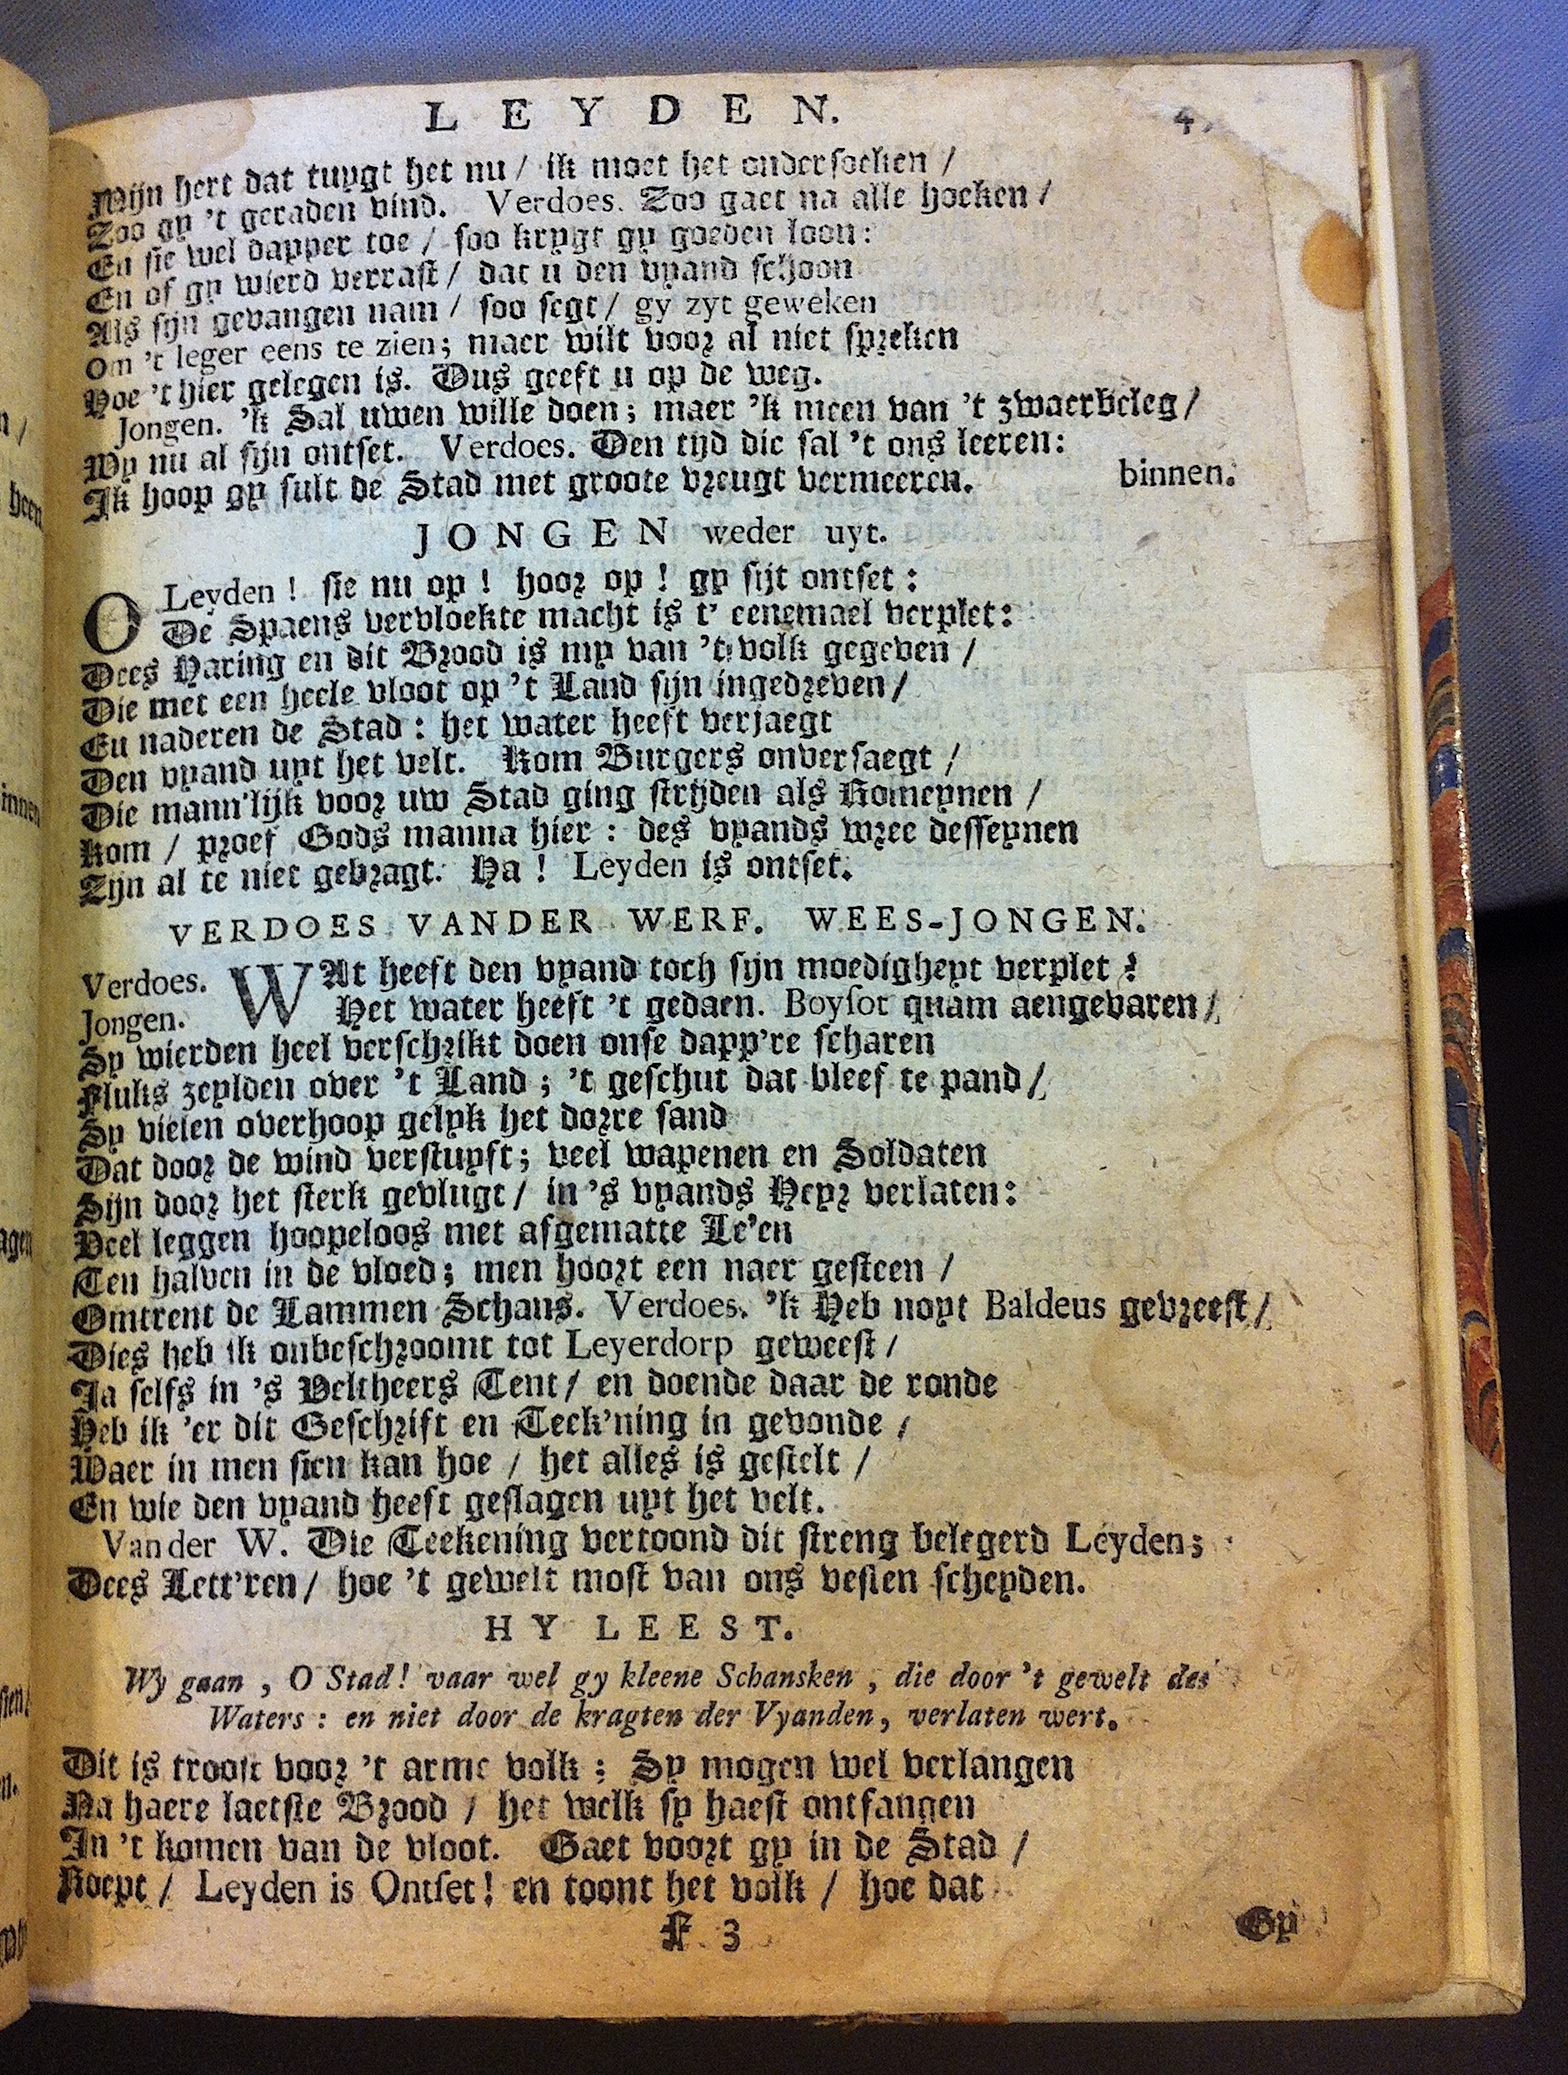 LEYDEN. 4
Mijn hert dat tuygt het nu / ik moet het ondersoeken /
Zoo gy 't geraden vind. Verdoes. Zoo gaet na alle hoeken /
En sie wel dapper toe / soo krygt gy goeden loon:
En of gy wierd verrast / dat u den vyand schoon
Als sijn gevangen nam / soo segt / gy zyt geweken
Om 't leger eens te zien; maer wilt voor al niet spreken
Hoe 't hier gelegen is. Dus geeft u op de weg.
Jongen. 'k Sal uwen wille doen; maer 'k meen van 't zwaer beleg /
Wy nu al sijn ontset. Verdoes. Den tijd die sal 't ons leeren:
Ik hoop gy sult de Stad met groote vreugt vermeeren. binnen.
JONGEN weder uyt.
O Leyden! sie nu op! hoor op! gy sijt ontset:
De Spaens vervloekte macht is t' eenemael verplet:
Dees Haring en dit Brood is my van 't volk gegeven /
Die met een heele vloot op 't Land sijn ingedreven /
En naderen de Stad: het water heeft verjaegt
Den vyand uyt het velt. Kom Burgers onversaegt /
Die mann'lijk voor uw Stad ging strijden als Romeynen /
Kom / proef Gods manna hier: des vyands wree desseynen
Zijn al te niet gebragt. Ha! Leyden is ontset.
VERDOES VANDER WERF. WEES-JONGEN.
Verdoes. WAt heeft den vyand toch sijn moedigheyt verplet?
Jongen. Het water heeft 't gedaen. Boysot quam aengevaren /
Sy wierden heel verschrikt doen onse dapp're scharen
Fluks zeylden over 't Land; 't geschut dat bleef te pand /
Sy vielen overhoop gelyk het dorre sand
Dat door de wind verstuyft; veel wapenen en Soldaten
Sijn door het sterk gevlugt / in 's vyands Heyr verlaten:
Veel leggen hoopeloos met afgematte Le'en
Ten halven in de vloed; men hoort een naer gesteen /
Omtrent de Lammen Schans. Verdoes. 'k Heb noyt Baldeus gevreest /
Dies heb ik onbeschroomt tot Leyerdorp geweest /
Ja selfs in 's Veltheers Tent / en doende daar de ronde
Heb ik 'er dit Geschrift en Teek'ning in gevonde /
Waer in men sien kan hoe / het alles is gestelt /
En wie den vyand heeft geslagen uyt het velt.
Vander W. Die Teekening vertoond dit streng belegerd Leyden;
Dees Lett'ren / hoe 't gewelt most van ons vesten scheyden.
HY LEEST.
Wy gaan, O Stad! vaar wel gy kleene Schansken, die door 't gewelt des
Waters: en niet door de kragten der Vyanden, verlaten wert.
Dit is troost voor 't arme volk; Sy mogen wel verlangen
Na haere laetste Brood / het welk sy haest ontfangen
In 't komen van de vloot. Gaet voort gy in de Stad /
Roept / Leyden is Ontset! en toont het volk / hoe dat
F 3 Gy